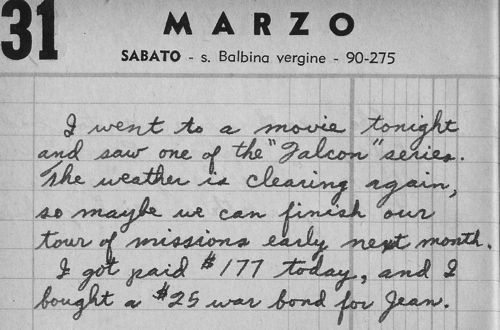 31 MARZO
SABATO - s. Balbina vergine - 90-275
I went to a movie tonight
and saw one of the "Falcon" series.
The weather is clearing again,
so maybe we can finish our
tour of missions early next month.
I got paid $177 today, and I
bought a $25 war bond for Jean.